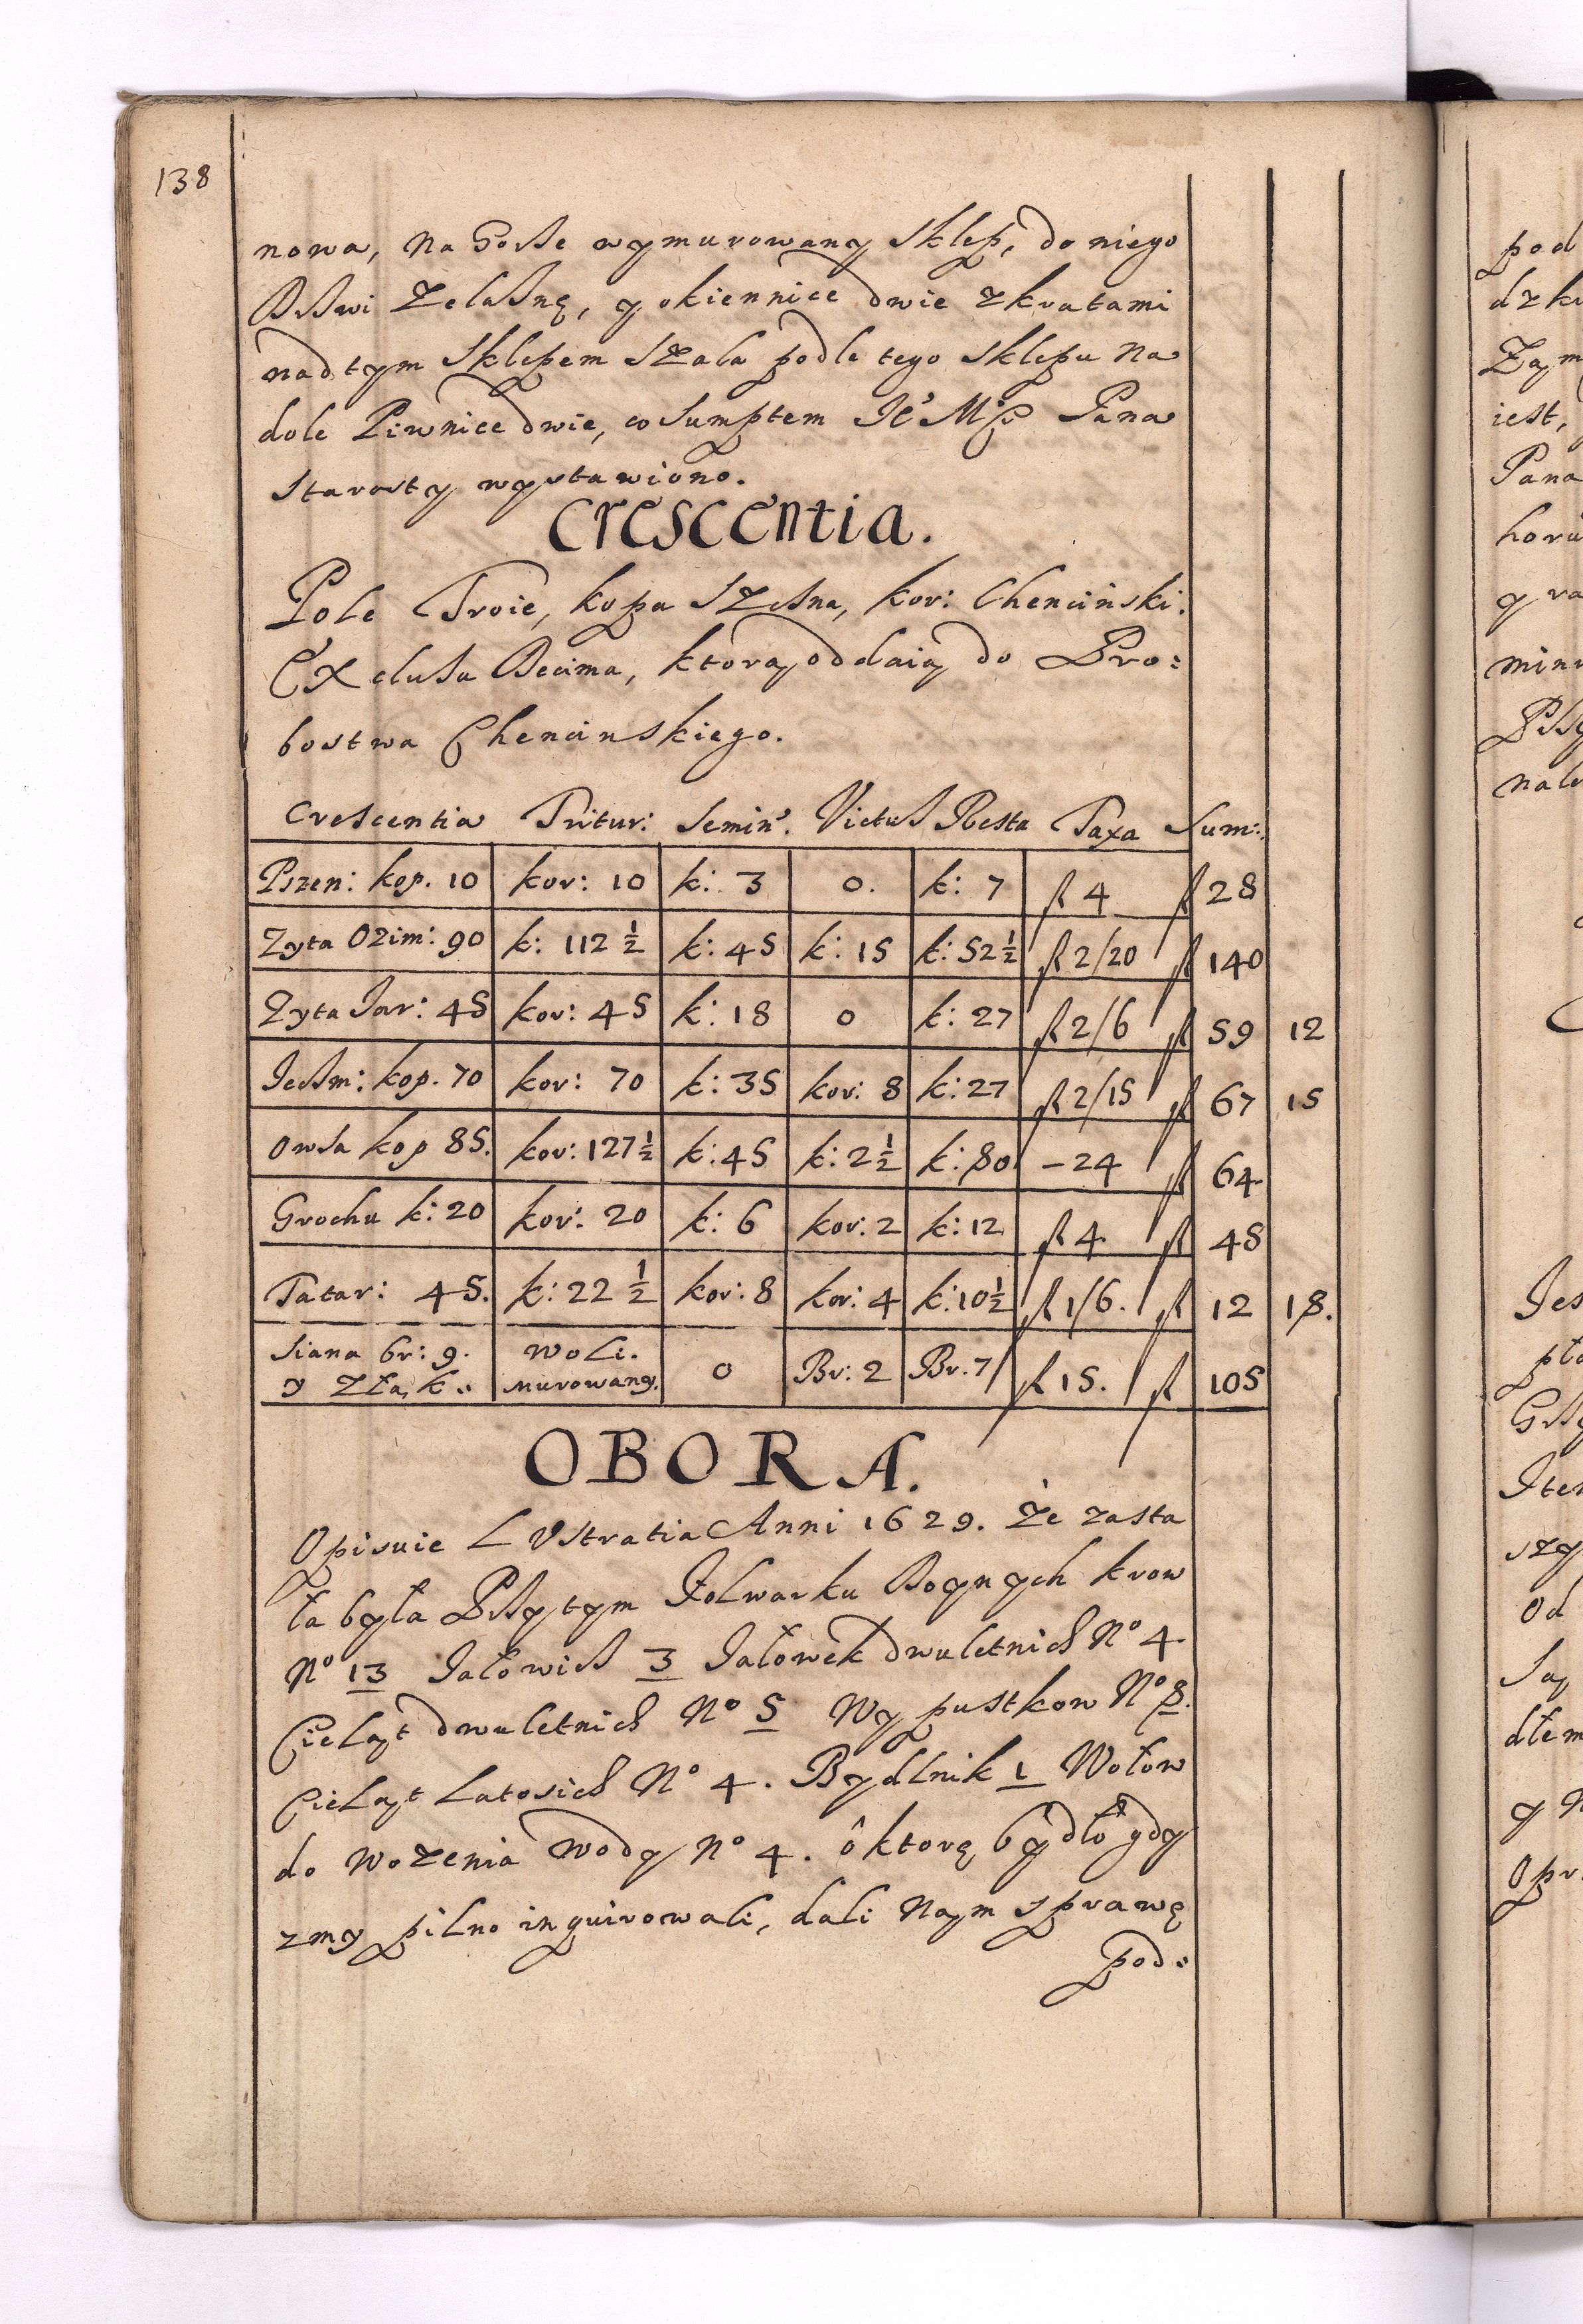 138
nowa, na Gorße wymurowany Sklep, do niego
Drßwi Zelaßnę, y okiennice dwie zkratami
nad tym Sklepem Szala podle tego Sklepu na
dole Piwnice dwie, co Sumptem Je° Mśc Pana
Starosty wystawiono.
Crescentia.
Pole Troie, kopa Szesna, kor: Chencinski.
Exclusa Decima, ktorą oddaią do Pro:
bostwa Chencinskiego.
Crescentia Tritur: Semin: Victus Resta Taxa Sum:
Pszen: kop. 10 kor: 10 k: 3 0. k: 7 fl 4 fl 28
Zyta Ozim: 90 k: 112 ½ k: 45 k: 15 k: 52 ½ fl 2/20 fl 140
Zyta Jar: 45 kor: 45 k: 18 0 k: 27 fl 2/6 fl 59 12
Jeßm: kop. 70 kor: 70 k: 35 kor: 8 k: 27 fl 2/15 fl 67 15
Owsa kop 85. kor: 127 ½ k: 45 k: 2 ½ k: 80 – 24 fl 64
Grochu k: 20 kor: 20 k: 6 kor: 2 k: 12 fl 4 fl 48
Tatar: 45. k: 22 ½ kor: 8 kor: 4 k: 10 ½ fl 1/6. fl 12 18.
Siana br: 9. Woli. 0 Br: 2 Br. 7 fl 15. fl 105
y Złą, k.. murowany.
OBORA.
Opisuie Lustratia Anni 1629. Że zasta
ła była Prßytym Folwarku Doynych krow
N° 13 Jałowich 3 Jałowek dwuletnich N° 4
Cieląt dwuletnich N° 5 Wypustkow N° 8.
Cieląt Latosich N° 4. Bydlnik 1 Wołow
do wozenia wody N° 4. ô ktorę bydło gdy
zmy pilno inquirowali, dali Nam sprawę
pod:
pod
iest,
Pana
horu
y ra
nale
szy
od
Są
dłem